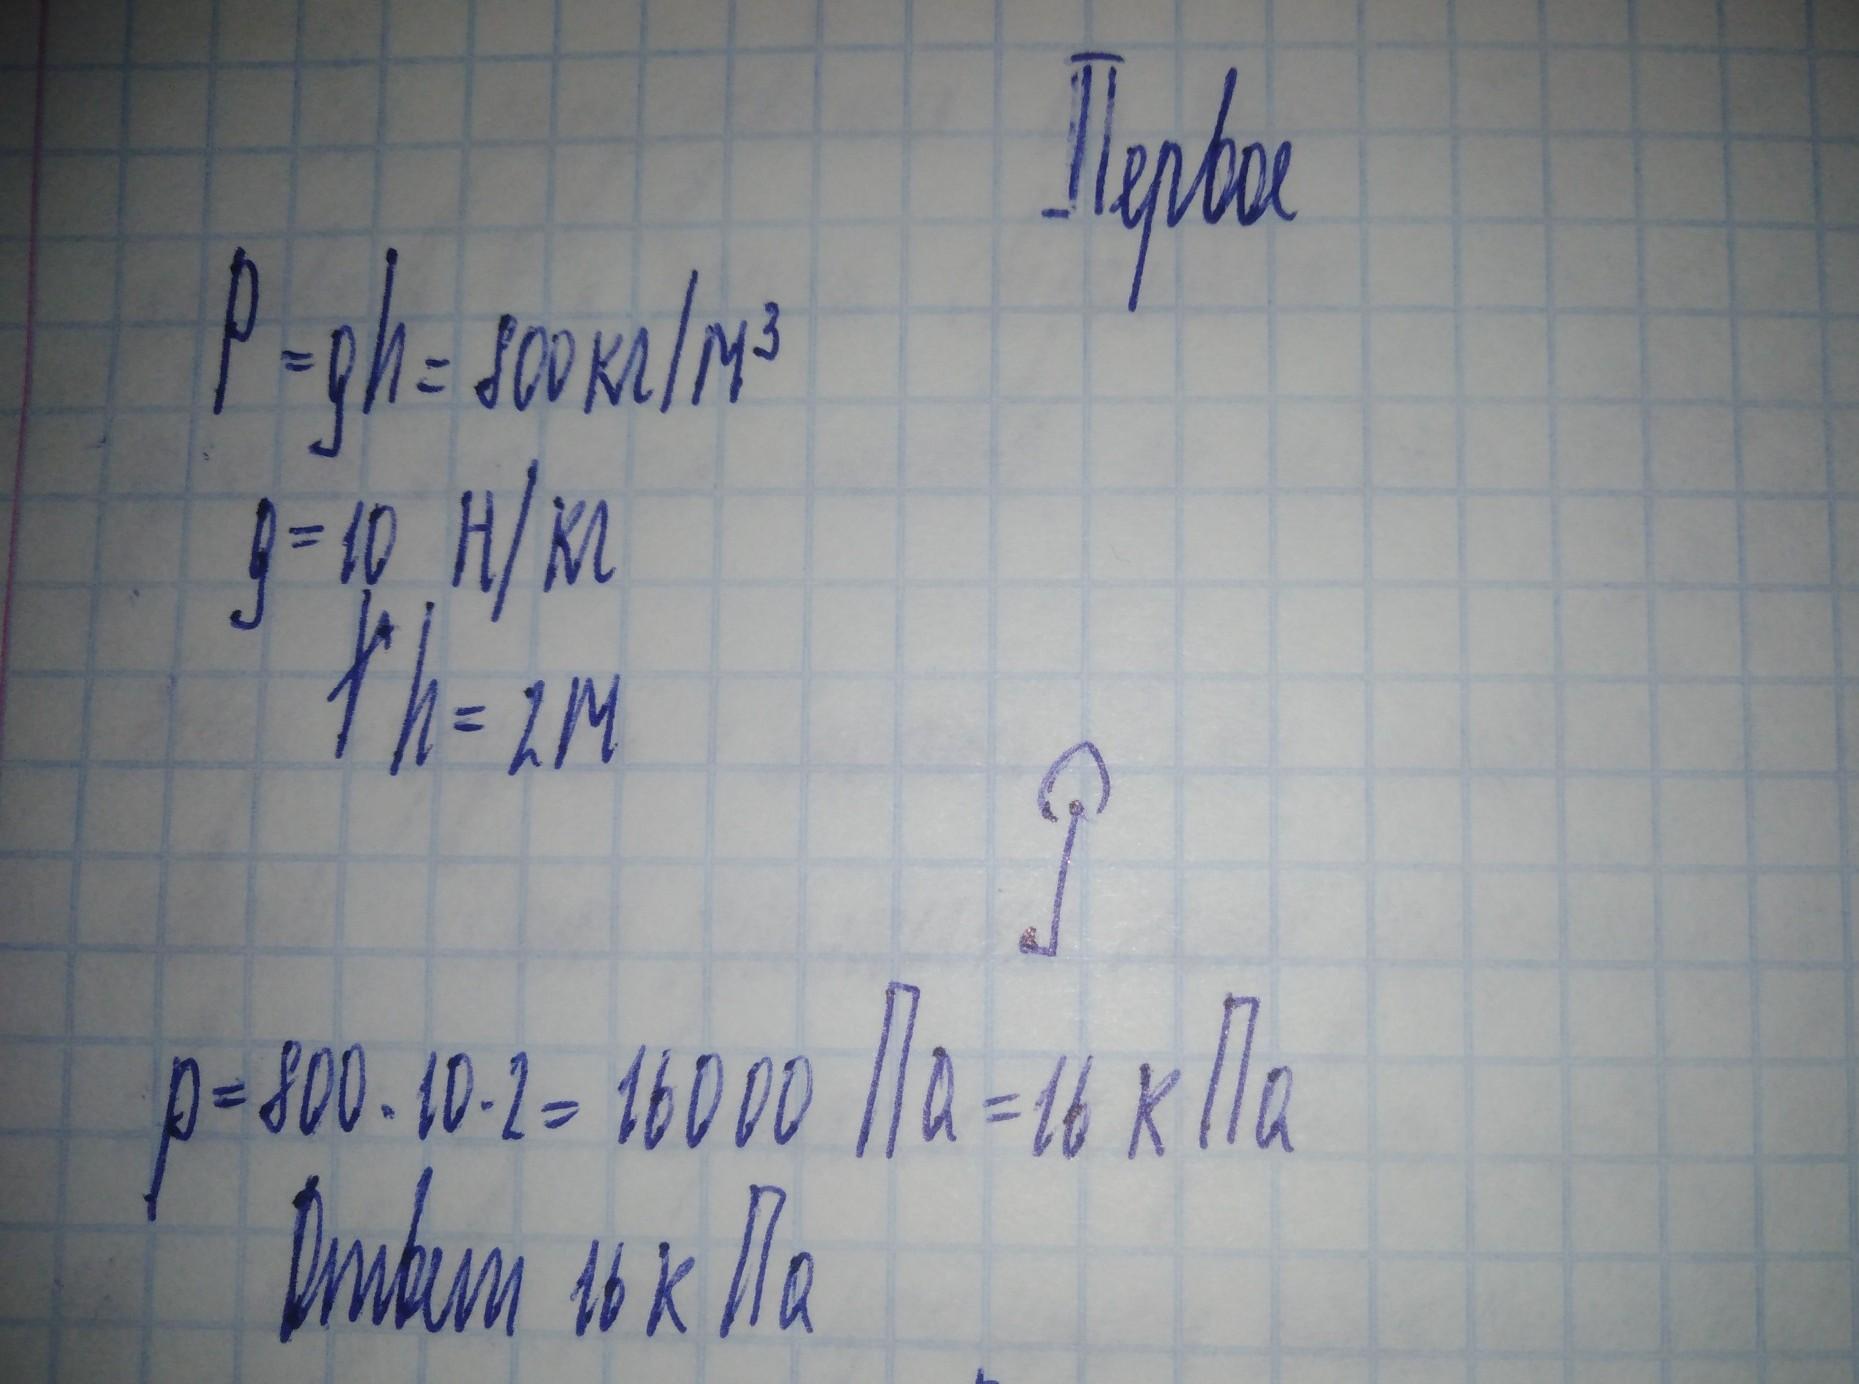 Первое
P = gh = 800 кг/м³
g = 10 Н/кг
h = 2 м
p = 800 · 10 · 2 = 16000 Па = 16 к Па
Ответ 16 к Па